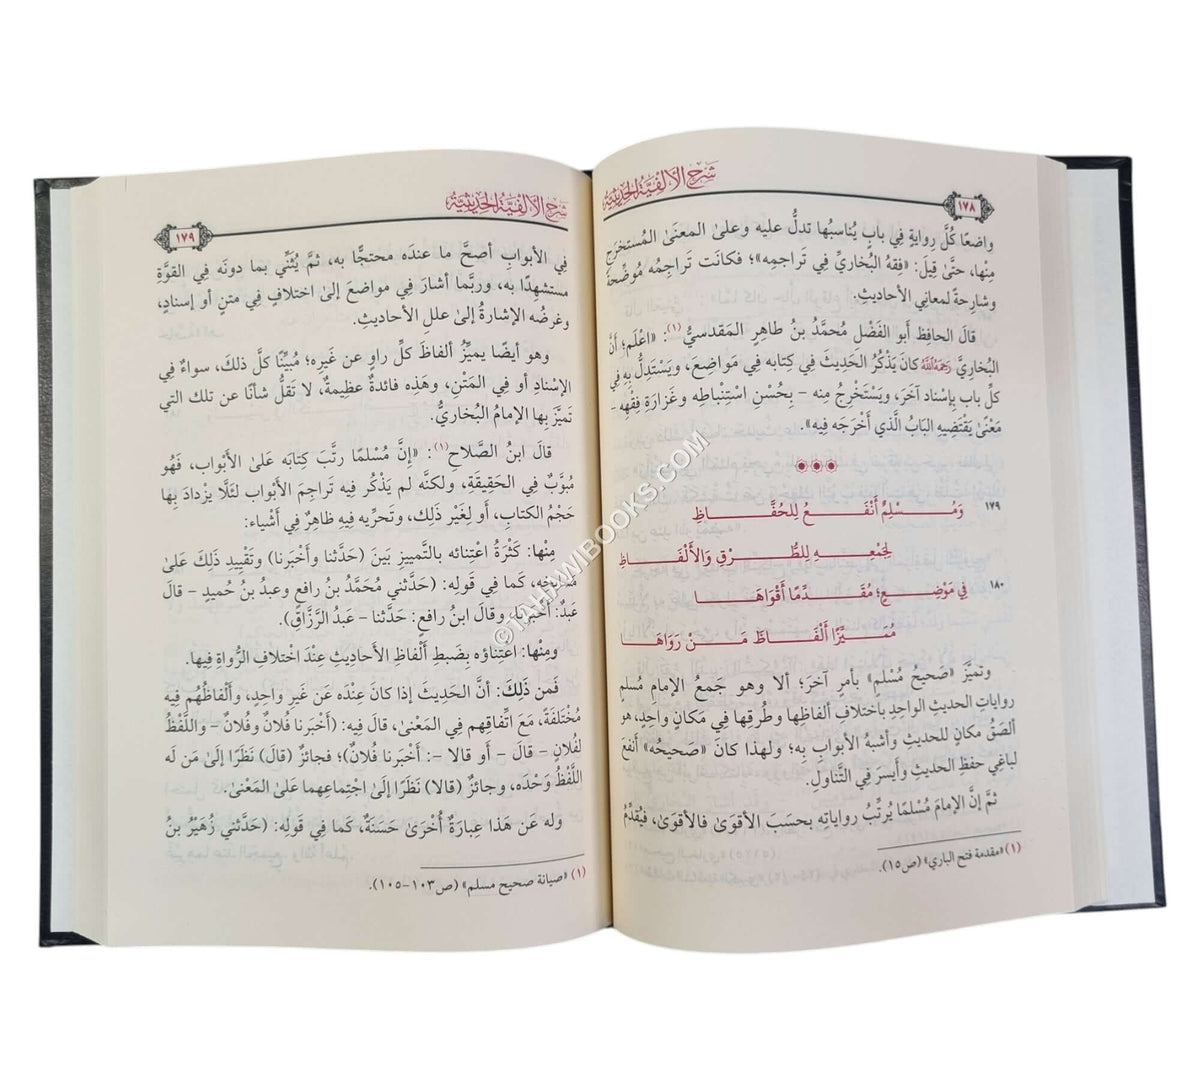 شرح الألفية الحديثية
١٧٨
واضعًا كُلَّ روايةٍ فِي بابٍ يُناسبُها تدلُّ عليه وعلىٰ المعنَىٰ المُستخرَجِ
مِنْها، حتَّىٰ قِيلَ: «فِقهُ البُخاريِّ فِي تراجمِه»؛ فكانَت تَراجِمُه مُوضِّحةً
وشارِحةً لمعانِي الأحاديثِ.
قالَ الحافِظ أَبو الفَضْل مُحمَّدُ بنُ طاهِرٍ المَقدسيُّ (١): «اعْلَم؛ أنَّ
البُخاريَّ رَحِمَهُ اللَّهُ كانَ يَذْكُرُ الحَدِيثَ فِي كتابِه فِي مَواضِعَ، ويَسْتَدِلُّ بِهِ فِي
كلِّ بابٍ بإِسْنادٍ آخَرَ، ويَسْتَخْرِجُ مِنه - بِحُسْنِ اسْتِنْباطِه وغَزارةِ فِقْهِه -
مَعْنًىٰ يَقْتَضِيهِ البَابُ الَّذي أَخْرَجَه فِيه».
١٧٩ وَمُسْلِمٌ أَنْفَعُ لِلحُفَّاظِ
لِجَمْعِهِ لِلطُّرْقِ وَالأَلْفَاظِ
١٨٠ فِي مَوْضِعٍ؛ مُقَدِّمًا أَقْوَاهَا
مُمَيِّزًا أَلْفَاظَ مَنْ رَوَاهَا
وتميَّز «صَحيحُ مُسْلِمٍ» بأمرٍ آخرَ؛ ألا وهو جَمعُ الإمامِ مُسْلمٍ
رواياتِ الحديثِ الواحدِ باختلافِ ألفاظِها وطُرقِها فِي مَكانٍ واحدٍ، هو
ألصَقُ مكانٍ للحديثِ وأشبهُ الأبوابِ بِهِ؛ ولهذا كانَ «صَحيحُه» أنفعَ
لباغِي حفظِ الحديثِ وأيسرَ فِي التَّناولِ.
ثمَّ إنَّ الإمامَ مُسْلمًا يُرتِّبُ رواياتِه بحسَبَ الأقوَىٰ فالأقوَىٰ، فيُقدِّمُ
(١) «مقدمة فتح الباري» (ص١٥).
شرح الألفية الحديثية
١٧٩
فِي الأبوابِ أصحَّ ما عندَه محتجًّا به، ثمَّ يُثنِّي بما دونَه فِي القوَّةِ
مستشهِدًا به، وربَّما أشارَ فِي مواضعَ إلىٰ اختلافٍ فِي متنٍ أو إسنادٍ،
وغرضُه الإشارةُ إلىٰ عللِ الأحاديثِ.
وهو أيضًا يميِّزُ ألفاظَ كلِّ راوٍ عن غَيرِه؛ مُبيِّنًا كلَّ ذلكَ، سواءٌ فِي
الإسْنادِ أو فِي المَتْنِ، وهَذِه فائدةٌ عظيمةٌ، لا تَقلُّ شأنًا عن تلك التي
تَميَّزَ بِها الإمامُ البُخاريُّ.
قالَ ابنُ الصَّلاحِ (١): «إنَّ مُسْلمًا رتَّبَ كِتابَه عَلىٰ الأَبْوابِ، فَهُو
مُبوَّبٌ فِي الحَقِيقَةِ، ولكنَّه لم يَذْكُر فيه تراجِمَ الأَبْوابِ لئلَّا يزْدادَ بِها
حَجْمُ الكتابِ، أو لِغَيْرِ ذَلِكَ، وتَحرِّيه فيهِ ظاهِرٌ فِي أَشْياء:
مِنْها: كَثْرَةُ اعْتِنائِه بالتَّمييزِ بَينَ (حَدَّثنا وأَخْبرنا) وتقْييدِ ذَلكَ عَلىٰ
مشايخِه، كَما فِي قَولِه: (حَدَّثني مُحمَّدُ بنُ رافعٍ وعبدُ بنُ حُميدٍ - قالَ
عَبدٌ: أَخْبَرنا، وقالَ ابنُ رافعٍ: حَدَّثنا - عَبدُ الرَّزَّاقِ).
ومِنْها: اعتِناؤه بِضَبطِ أَلْفاظِ الأَحاديثِ عِنْدَ اخْتلافِ الرُّواةِ فِيها.
فَمن ذَلكَ: أنَّ الحَدِيثَ إذا كانَ عِنْدَه عَن غَيرِ واحِدٍ، وأَلْفاظُهُم فِيه
مُخْتلفَةٌ، مَعَ اتِّفاقِهم فِي المَعْنىٰ، قالَ فِيه: (أَخْبرنا فُلانٌ وفُلانٌ - واللَّفْظُ
لِفُلانٍ - قالَ - أَو قالَا -: أَخْبرنا فُلانٌ)؛ فجائزٌ (قالَ) نَظَرًا إلىٰ مَن لَه
اللَّفْظُ وَحْدَه، وجائزٌ (قالَا) نَظَرًا إلىٰ اجْتِماعِهما عَلىٰ المَعْنىٰ.
وله عَن هَذا عِبارَةٌ أُخْرَىٰ حَسَنَةٌ، كَما فِي قَولِه: (حَدَّثني زُهَيْرُ بنُ
(١) «صيانة صحيح مسلم» (ص١٠٣-١٠٥).
©TAHAWIBOOKS.COM